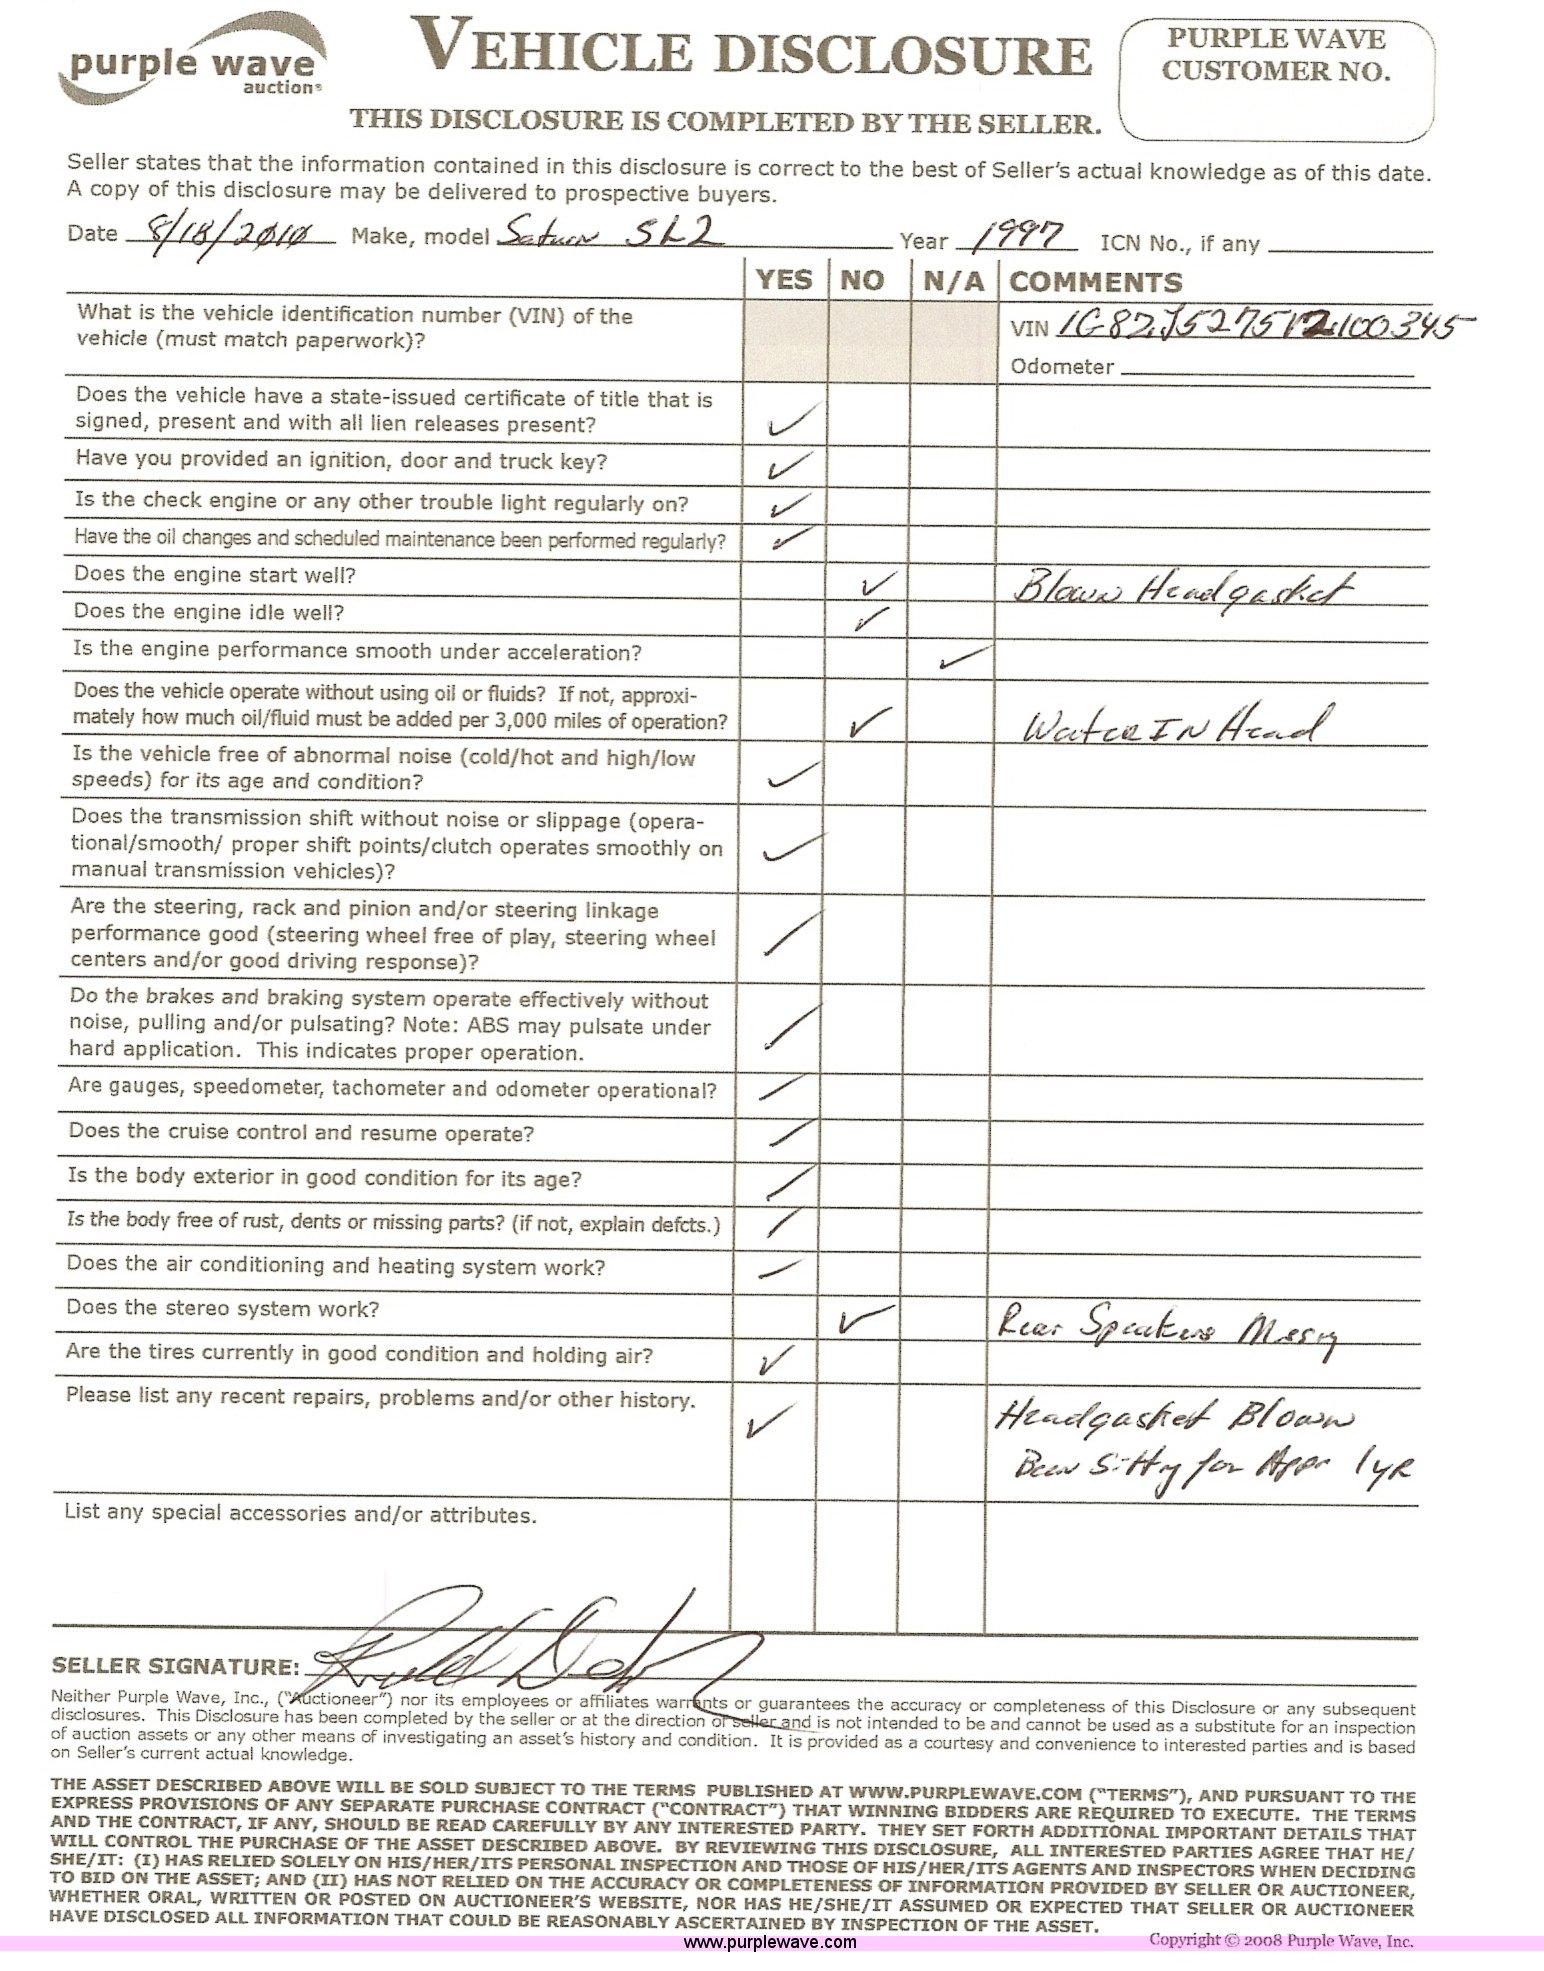 purple wave
auction®
VEHICLE DISCLOSURE
PURPLE WAVE
CUSTOMER NO.
THIS DISCLOSURE IS COMPLETED BY THE SELLER.
Seller states that the information contained in this disclosure is correct to the best of Seller's actual knowledge as of this date.
A copy of this disclosure may be delivered to prospective buyers.
Date 8/18/2010 Make, model Saturn SL2 Year 1997 ICN No., if any
YES NO N/A COMMENTS
What is the vehicle identification number (VIN) of the
vehicle (must match paperwork)?
VIN
Odometer
Does the vehicle have a state-issued certificate of title that is
signed, present and with all lien releases present? ✓
Have you provided an ignition, door and truck key? ✓
Is the check engine or any other trouble light regularly on? ✓
Have the oil changes and scheduled maintenance been performed regularly? ✓
Does the engine start well? ✓ Blown Headgasket
Does the engine idle well? ✓
Is the engine performance smooth under acceleration? ✓
Does the vehicle operate without using oil or fluids? If not, approxi-
mately how much oil/fluid must be added per 3,000 miles of operation? ✓ Water IN Head
Is the vehicle free of abnormal noise (cold/hot and high/low
speeds) for its age and condition? ✓
Does the transmission shift without noise or slippage (opera-
tional/smooth/ proper shift points/clutch operates smoothly on
manual transmission vehicles)? ✓
Are the steering, rack and pinion and/or steering linkage
performance good (steering wheel free of play, steering wheel
centers and/or good driving response)?
Do the brakes and braking system operate effectively without
noise, pulling and/or pulsating? Note: ABS may pulsate under
hard application. This indicates proper operation.
Are gauges, speedometer, tachometer and odometer operational?
Does the cruise control and resume operate?
Is the body exterior in good condition for its age?
Is the body free of rust, dents or missing parts? (if not, explain defcts.)
Does the air conditioning and heating system work?
Does the stereo system work? ✓ Rear Speakers Missing
Are the tires currently in good condition and holding air? ✓
Please list any recent repairs, problems and/or other history. ✓ Headgasket Blown
Been Sitting for Appr 1yR
List any special accessories and/or attributes.
SELLER SIGNATURE:
Neither Purple Wave, Inc., ("Auctioneer") nor its employees or affiliates warrants or guarantees the accuracy or completeness of this Disclosure or any subsequent
disclosures. This Disclosure has been completed by the seller or at the direction of seller and is not intended to be and cannot be used as a substitute for an inspection
of auction assets or any other means of investigating an asset's history and condition. It is provided as a courtesy and convenience to interested parties and is based
on Seller's current actual knowledge.
THE ASSET DESCRIBED ABOVE WILL BE SOLD SUBJECT TO THE TERMS PUBLISHED AT WWW.PURPLEWAVE.COM ("TERMS"), AND PURSUANT TO THE
EXPRESS PROVISIONS OF ANY SEPARATE PURCHASE CONTRACT ("CONTRACT") THAT WINNING BIDDERS ARE REQUIRED TO EXECUTE. THE TERMS
AND THE CONTRACT, IF ANY, SHOULD BE READ CAREFULLY BY ANY INTERESTED PARTY. THEY SET FORTH ADDITIONAL IMPORTANT DETAILS THAT
WILL CONTROL THE PURCHASE OF THE ASSET DESCRIBED ABOVE. BY REVIEWING THIS DISCLOSURE, ALL INTERESTED PARTIES AGREE THAT HE/
SHE/IT: (I) HAS RELIED SOLELY ON HIS/HER/ITS PERSONAL INSPECTION AND THOSE OF HIS/HER/ITS AGENTS AND INSPECTORS WHEN DECIDING
TO BID ON THE ASSET; AND (II) HAS NOT RELIED ON THE ACCURACY OR COMPLETENESS OF INFORMATION PROVIDED BY SELLER OR AUCTIONEER,
WHETHER ORAL, WRITTEN OR POSTED ON AUCTIONEER'S WEBSITE, NOR HAS HE/SHE/IT ASSUMED OR EXPECTED THAT SELLER OR AUCTIONEER
HAVE DISCLOSED ALL INFORMATION THAT COULD BE REASONABLY ASCERTAINED BY INSPECTION OF THE ASSET.
www.purplewave.com
Copyright © 2008 Purple Wave, Inc.